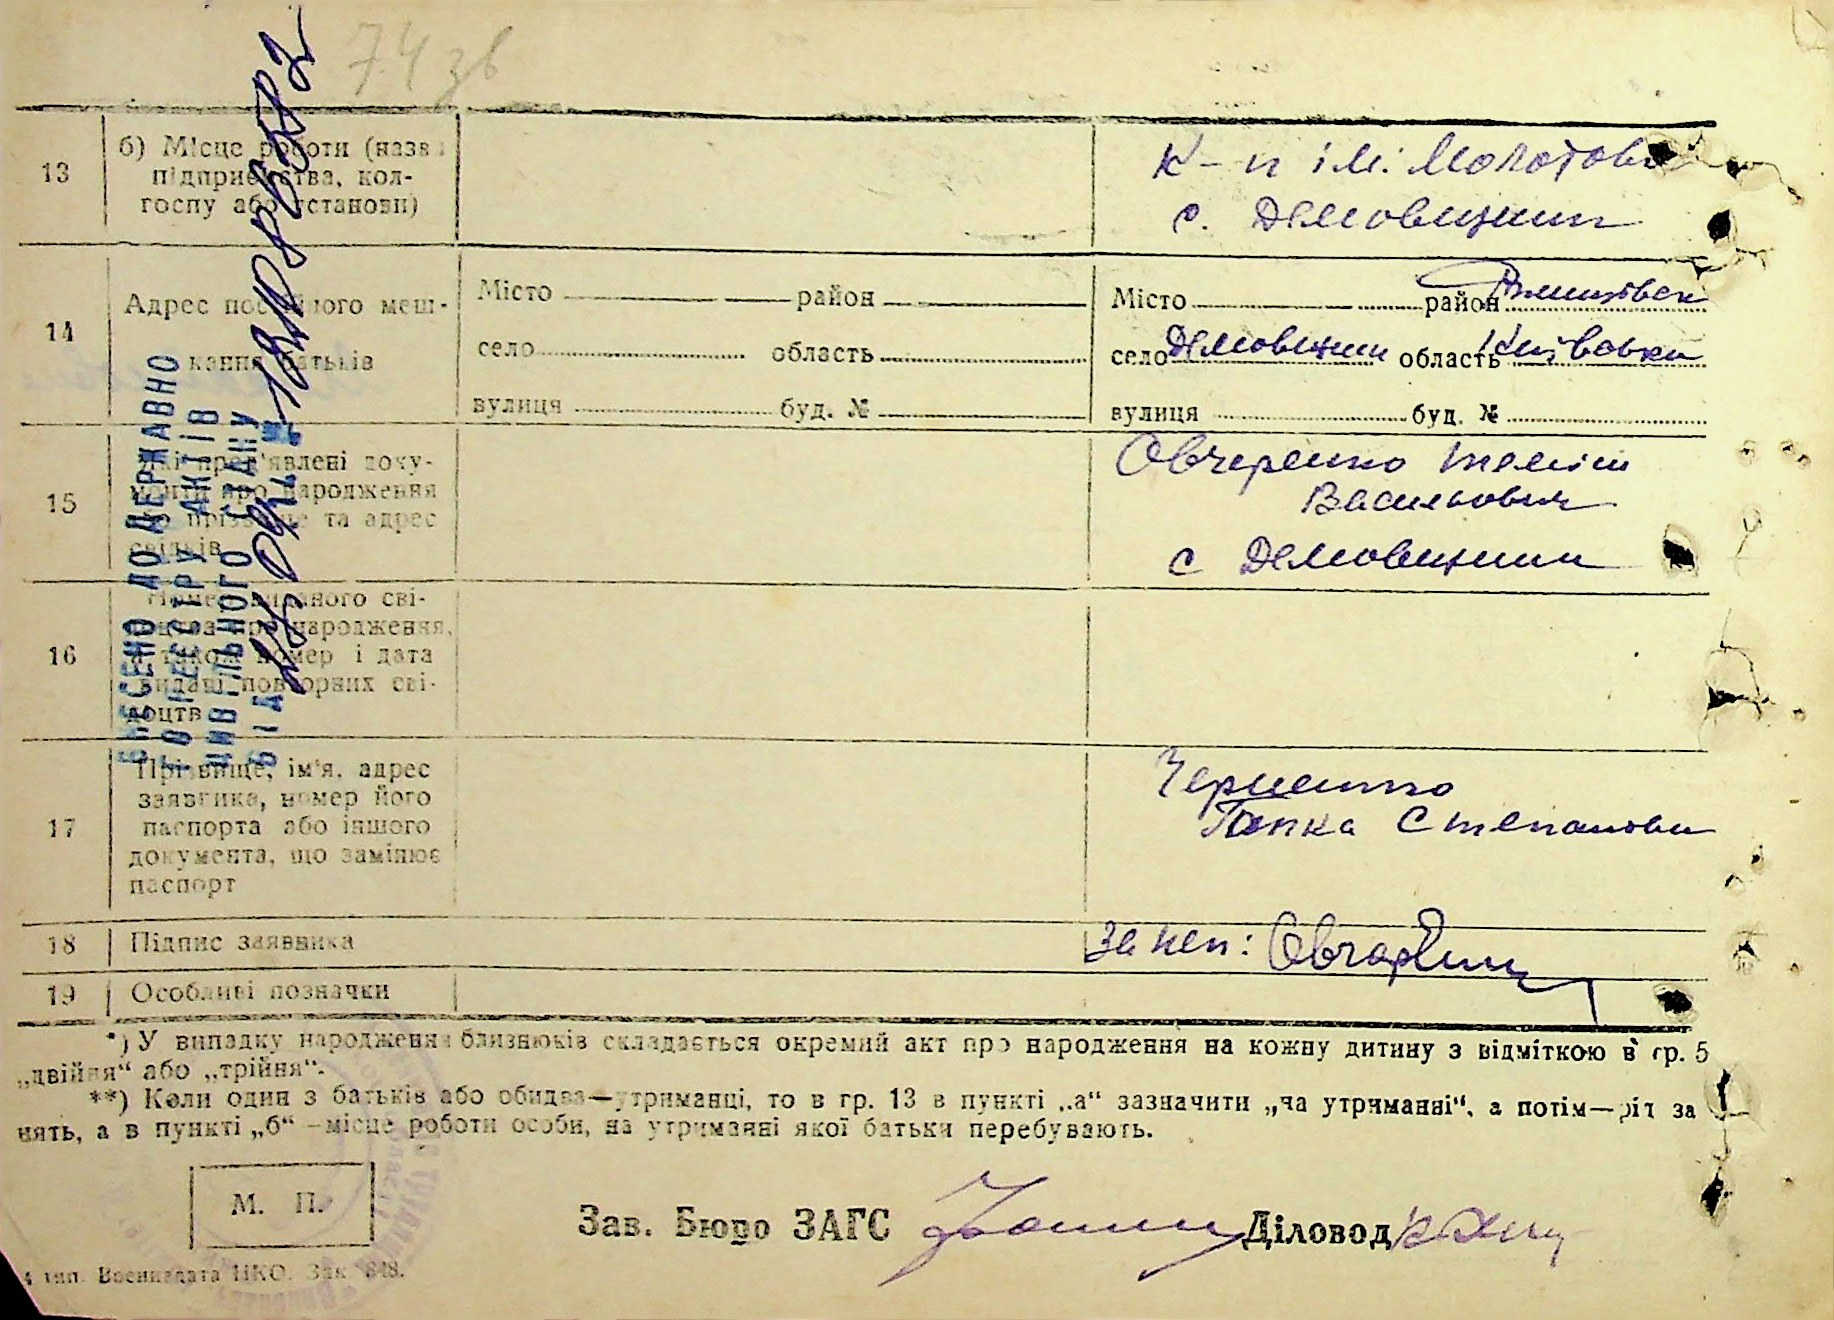 74 зв
13
б) Місце роботи (назва
підприємства, кол-
госпу або установи)
К-п ім. Молотова
с. Демовщини
14
Адрес постійного меш-
кання батьків
Місто район
село область
вулиця буд. №
Місто район
село Демовщини область Київська
вулиця буд. №
15
Які пред'явлені доку-
менти про народження
або прізвище та адрес
свідків
Овчеренко
Васильович
с Демовщини
16
Номер виданого сві-
доцтва про народження,
а також номер і дата
видачі повторних сві-
доцтв
17
Прізвище, ім'я, адрес
заявника, номер його
паспорта або іншого
документа, що замінює
паспорт
Черненко
Гапка Степанови
18
Підпис заявника
За неп:
19
Особливі позначки
ВНЕСЕНО ДО ДЕРЖАВНО
ГО РЕЄСТРУ АКТІВ
ЦИВІЛЬНОГО СТАНУ
ВІД №
*) У випадку народження близнюків складається окремий акт про народження на кожну дитину з відміткою в гр. 5
„двійня“ або „трійня“.
**) Коли один з батьків або обидва—утриманці, то в гр. 13 в пункті „а“ зазначити „на утриманні“, а потім—рід за
нять, а в пункті „б“ —місце роботи особи, на утриманні якої батьки перебувають.
М. П.
Зав. Бюро ЗАГС Діловод
4 тип. Воениздата НКО. Зак. 848.